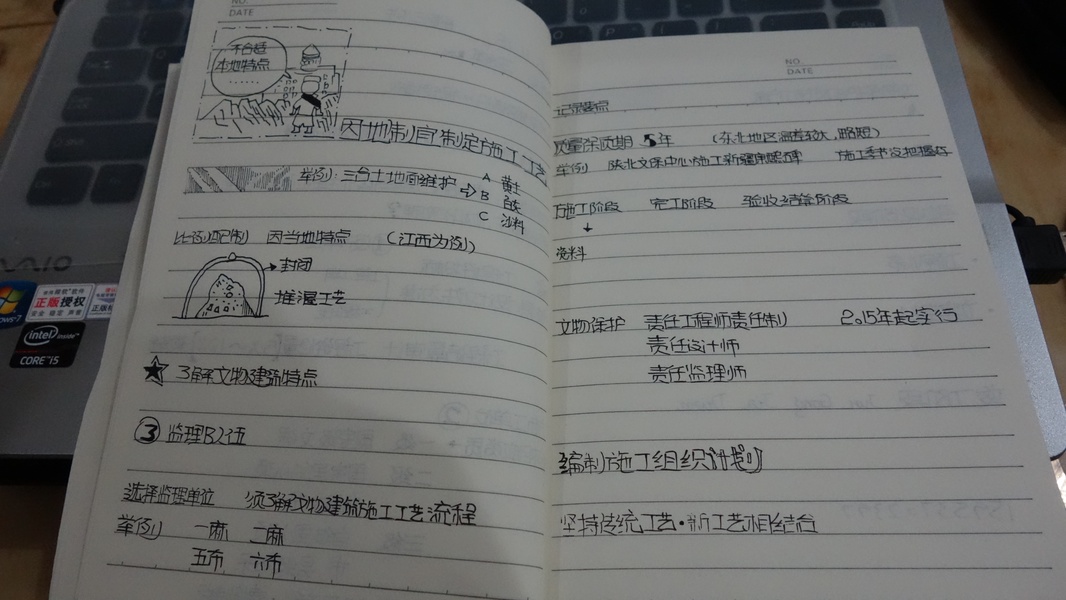 NO.
DATE
不合适
本地特点
......
因地制宜制定施工工艺
举例：三合土地面维护 A 黄土
B 白灰
C 沙料
比例配制 因当地特点 (江西为例)
封闭
堆渥工艺
☆ 了解文物建筑特点
③ 监理队伍
选择监理单位 须了解文物建筑施工工艺流程
举例 一麻 二麻
五布 六布
NO.
DATE
记录要点
质量保质期 5年 (东北地区温差较大，略短)
举例 陕北文保中心施工新疆 施工季节没把握好
施工阶段 完工阶段 验收结算阶段
资料
文物保护 责任工程师责任制 2015年起字行
责任设计师
责任监理师
编制施工组织(计划)
坚持传统工艺·新工艺相结合
VAIO
正版授权
安全 稳定 声誉
Windows 7
intel inside
CORE i5